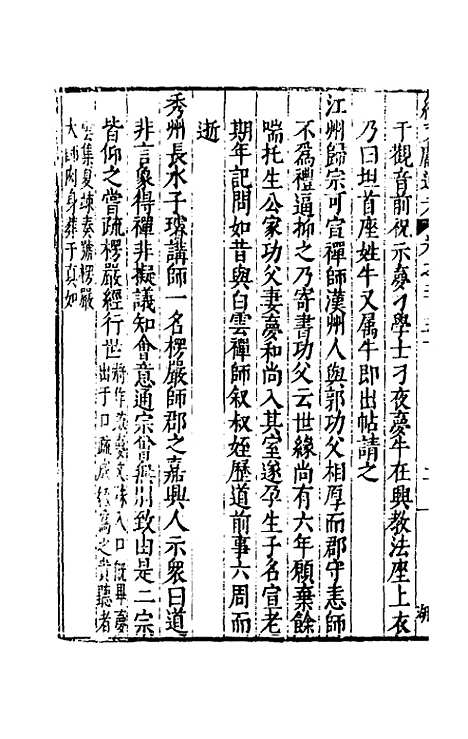 于觀音前祝示夢刁學士刁夜夢牛在興教法座上衣
乃曰坦首座姓牛又属牛即出帖請之
江州歸宗可宣禪師漢州人與郭功父相厚而郡守恚師
不爲禮逼抑之乃寄書功父云世緣尚有六年願棄餘
喘托生公家功父妻夢和尚入其室遂孕生子名宣老
期年記問如昔與白雲禪師叙叔姪歷道前事六周而
逝
秀州長水子璿講師一名楞嚴師郡之嘉興人示衆曰道
非言象得禪非擬議知會意通宗曾無別致由是二宗
皆仰之嘗疏楞嚴經行世
將作疏夢文殊入口既畢夢
出于口疏成經寫之貴聽者
雲集夏竦奏鴈楞嚴
大師肉身葬于真如